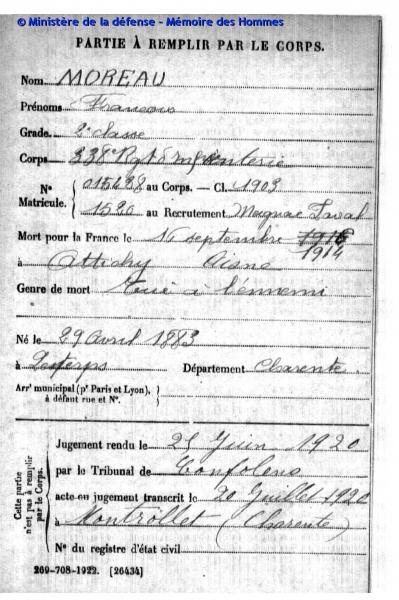 © Ministère de la défense - Mémoire des Hommes
PARTIE À REMPLIR PAR LE CORPS.
Nom MOREAU
Prénoms François
Grade 2e classe
Corps 338e Rgt d'infanterie
N° Matricule. 015438 au Corps. — Cl. 1903
1520 au Recrutement Magnac Laval
Mort pour la France le 16 septembre 1916
1914
à Attichy Aisne
Genre de mort Tué à l'ennemi
Né le 29 Avril 1883
à Lesterps Département Charente
Arrt municipal (pr Paris et Lyon), à défaut rue et N°.
Cette partie n'est pas à remplir par le Corps.
Jugement rendu le 25 Juin 1920
par le Tribunal de Confolens
acte ou jugement transcrit le 20 Juillet 1920
à Montrollet (Charente)
N° du registre d'état civil
269-708-1922. [26434]